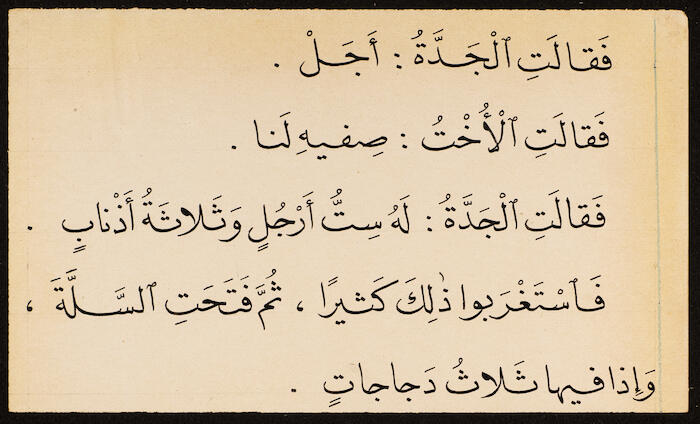 فَقالَتِ ٱلْجَدَّةُ : أَجَلْ .
فَقالَتِ ٱلْأُخْتُ : صِفيهِ لَنا .
فَقالَتِ ٱلْجَدَّةُ : لَهُ سِتُّ أَرْجُلٍ وَثَلاثَةُ أَذْنابٍ .
فَٱسْتَغْرَبوا ذٰلِكَ كَثيرًا ، ثُمَّ فَتَحَتِ ٱلسَّلَّةَ ،
وَإِذا فيها ثَلاثُ دَجاجاتٍ .